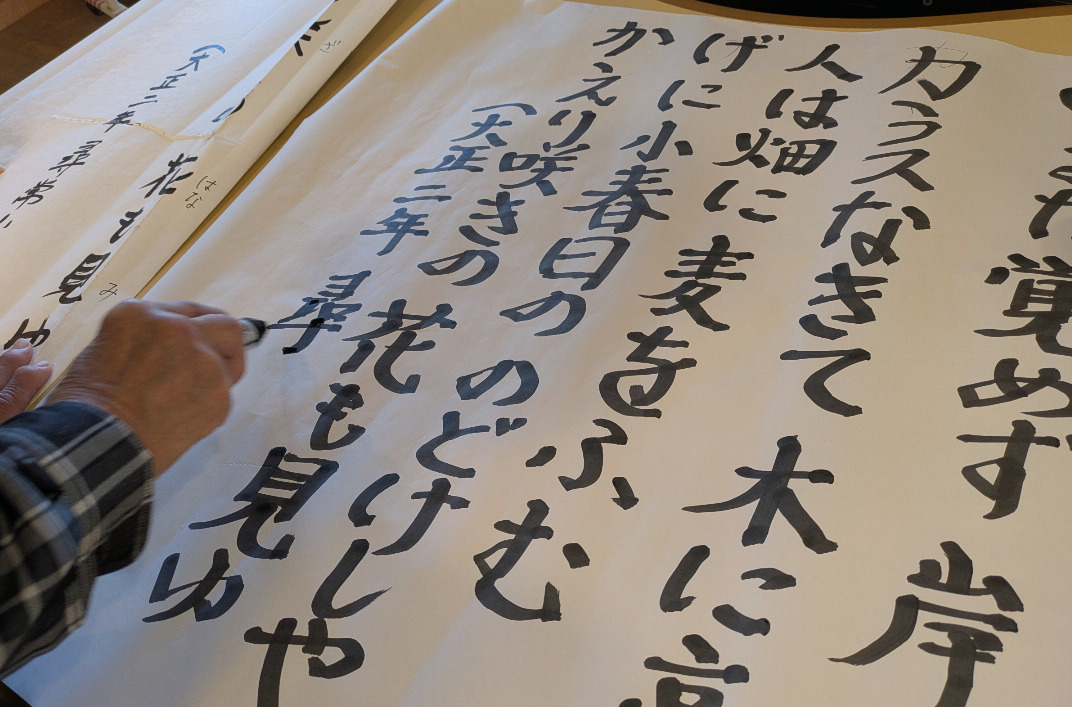 覚めず 岸
カラスなきて 木に高
人は畑に 麦をふむ
げに小春日の のどけしや
かえり咲きの 花も見ゆ
(大正二年 尋
ざ
はな み
花も見ゆ
(大正二年 尋常